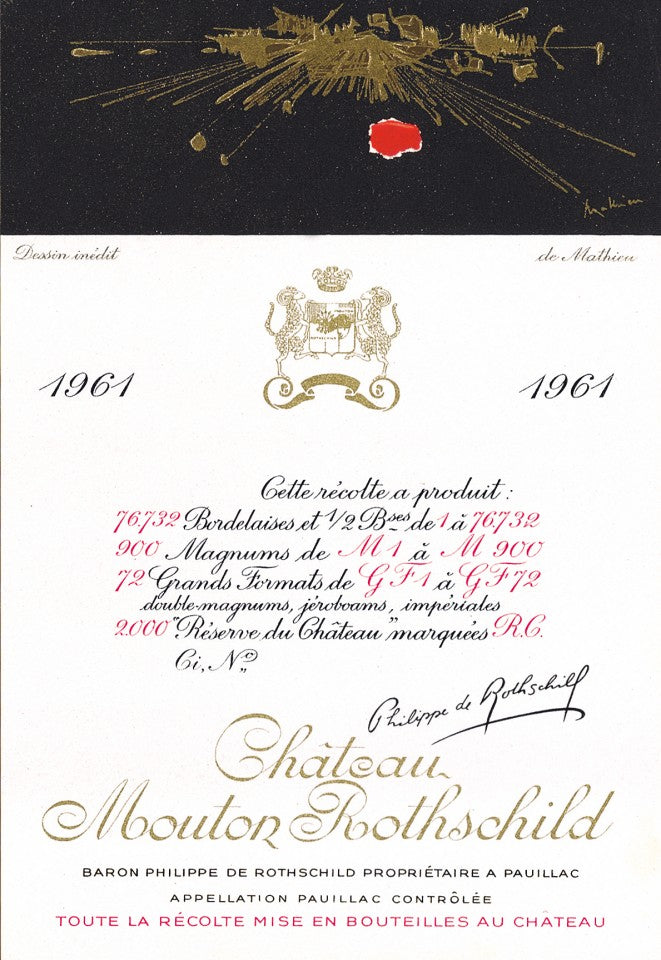 Mathieu
Dessin inédit
de Mathieu
1961
1961
Cette récolte a produit :
76.732 Bordelaises et 1/2 Bses de 1 à 76.732
900 Magnums de M 1 à M 900
72 Grands Formats de G F 1 à G F 72
double-magnums, jéroboams, impériales
2.000 "Réserve du Château" marquées R.C.
Ci, No
Philippe de Rothschild
Château
Mouton Rothschild
BARON PHILIPPE DE ROTHSCHILD PROPRIÉTAIRE A PAUILLAC
APPELLATION PAUILLAC CONTRÔLÉE
TOUTE LA RÉCOLTE MISE EN BOUTEILLES AU CHÂTEAU